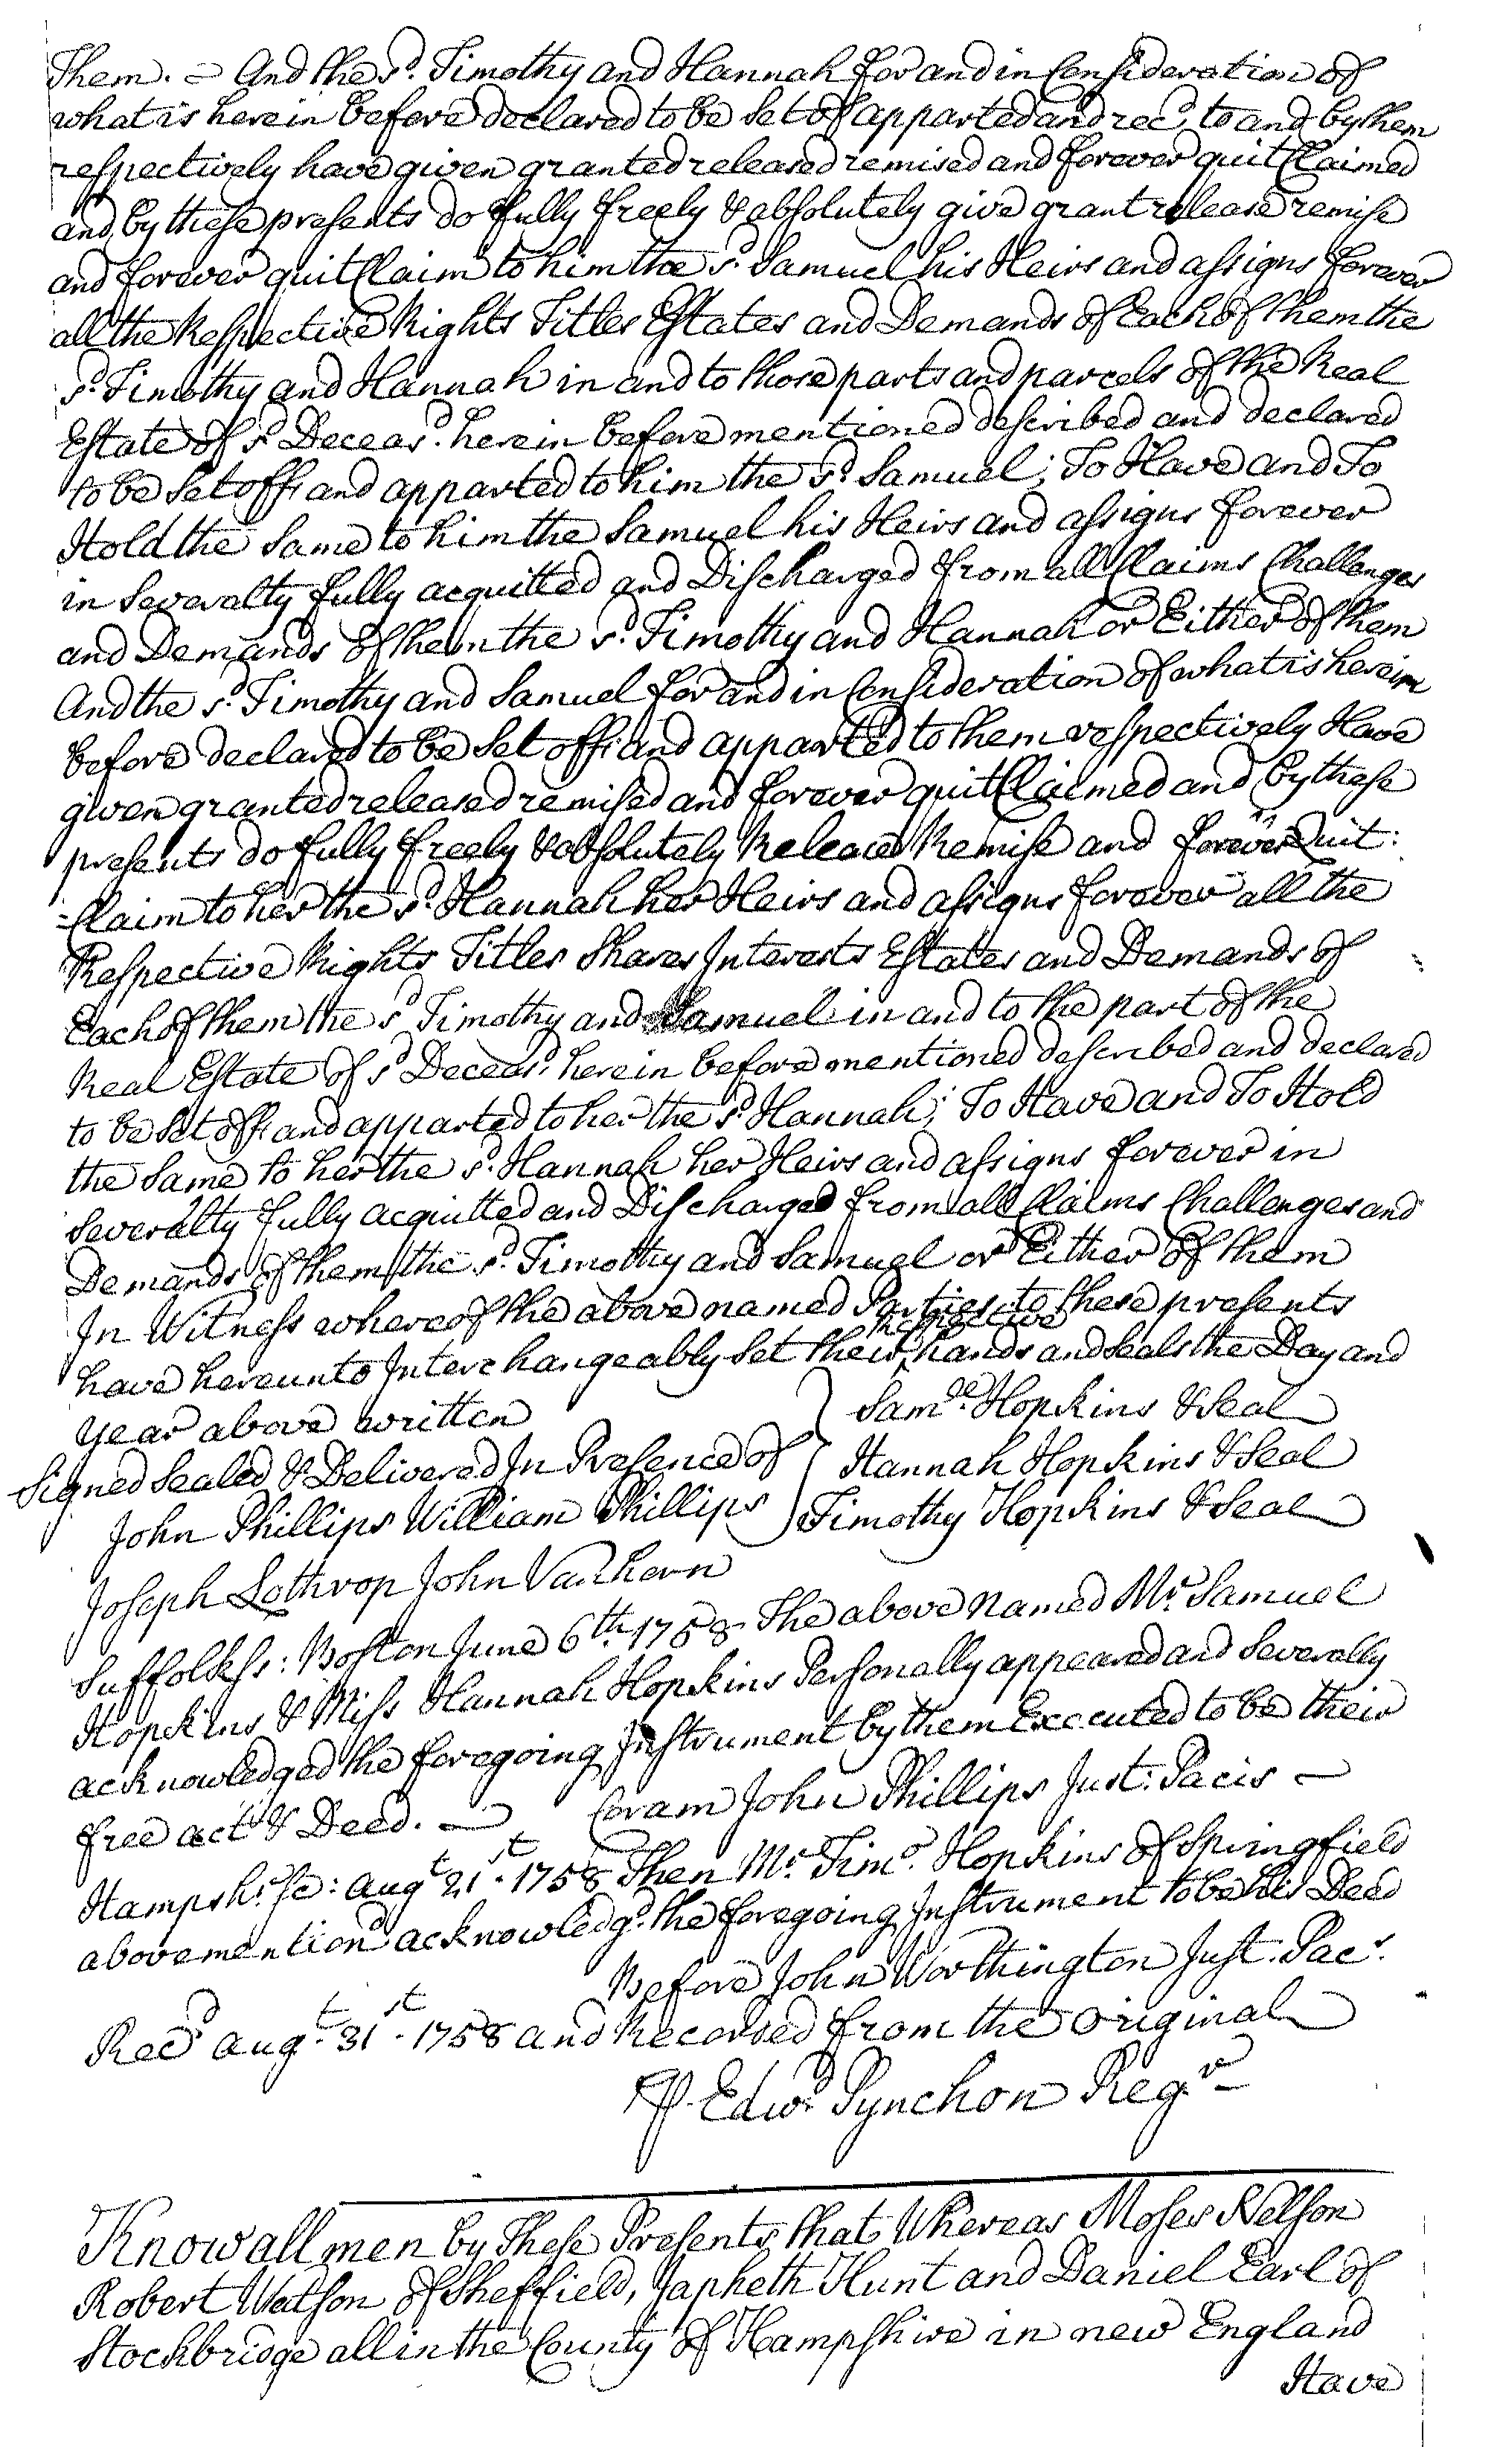 Them. = And the sd. Timothy and Hannah for and in Consideration of
what is herein before declared to be set off apparted and recd. to and by them
respectively have given granted released remised and forever quit Claimed
and by these presents do fully freely & absolutely give grant release remise
and forever quit Claim to him the sd. Samuel his Heirs and assigns forever
all the Respective Rights Titles Estates and Demands of Each of them the
sd. Timothy and Hannah in and to those parts and parcels of the Real
Estate of sd. Deceasd. herein before mentioned described and declared
to be set off and apparted to him the sd. Samuel; To Have and To
Hold the same to him the Samuel his Heirs and assigns forever
in severalty fully acquitted and Discharged from all Claims Challenges
and Demands of them the sd. Timothy and Hannah or Either of them
And the sd. Timothy and Samuel for and in Consideration of what is herein
before declared to be set off and apparted to them respectively Have
given granted released remised and forever quit Claimed and by these
presents do fully freely & absolutely Release Remise and forever Quit:
-Claim to her the sd. Hannah her Heirs and assigns forever all the
Respective Rights Titles Shares Interests Estates and Demands of
Each of them the sd Timothy and Samuel in and to the part of the
Real Estate of sd Deceasd. herein before mentioned described and declared
to be set off and apparted to her the sd. Hannah; To Have and To Hold
the same to her the sd. Hannah her Heirs and assigns forever in
severalty fully acquitted and Discharged from all Claims Challenges and
Demands of them the sd. Timothy and Samuel or Either of them
In Witness whereof the above named Parties to these presents
have hereunto Interchangeably set their respective hands and seals the Day and
year above written
Signed Sealed & Delivered In Presence of
John Phillips William Phillips
Joseph Lothrop John Vanhorn
Samel. Hopkins & Seal
Hannah Hopkins & Seal
Timothy Hopkins & Seal
Suffolk ss: Boston June 6th. 1758 The above Named Mr. Samuel
Hopkins & Miss Hannah Hopkins Personally appeared and severally
acknowledged the foregoing Instrument by them Executed to be their
free act & Deed. — Coram John Phillips Just: Pacis —
Hampshr. sc: Augt 21st. 1758 Then Mr. Timo. Hopkins of Springfield
abovementiond acknowledgd. the foregoing Instrument to be his Deed
Before John Worthington Just. Pacs.
Recd Augt. 31st. 1758 and Recorded from the Original
P Edwd. Pynchon Regr.
Know all men by These Presents that Whereas Moses Nelson
Robert Watson of Sheffield, Japheth Hunt and Daniel Earl of
Stockbridge all in the County of Hampshire in new England
Have